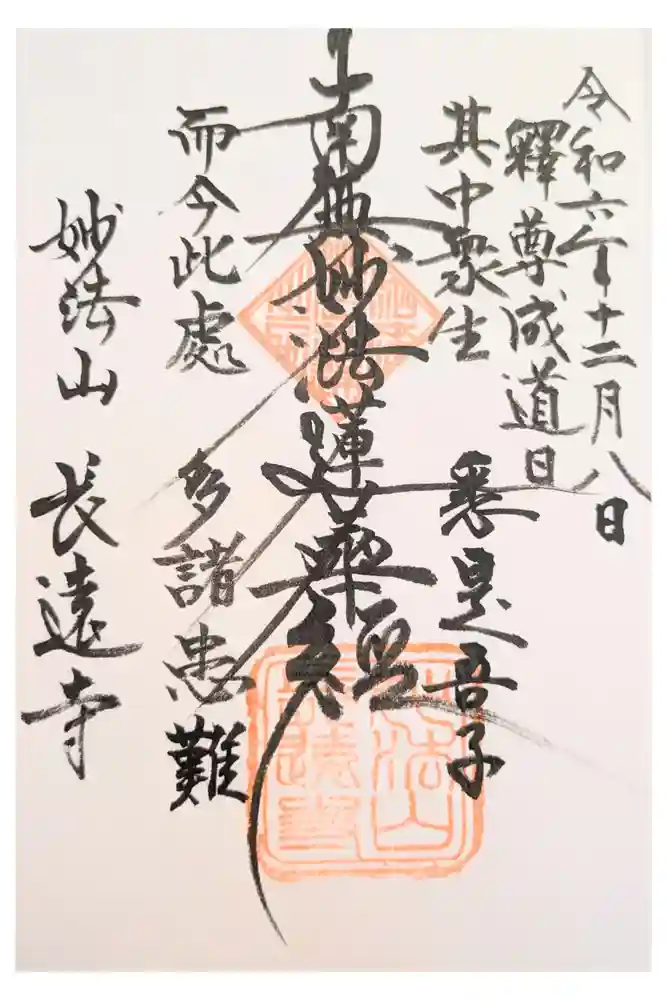 令和六年十二月八日
釋尊成道日
其中衆生 悉是吾子
南無妙法蓮華経
而今此處 多諸患難
妙法山 長遠寺
妙法山
長遠寺